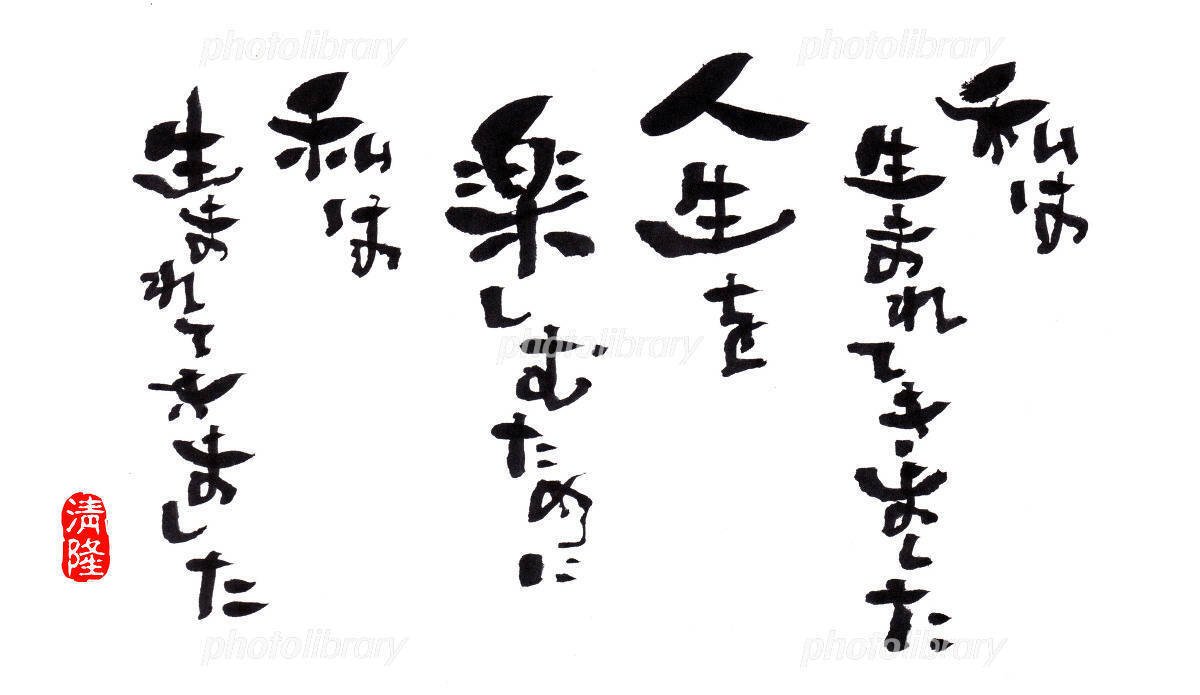 私は
生まれてきました
人生を
楽しむために
私は
生まれてきました
清隆
photolibrary
photolibrary
photolibrary
photolibrary
photolibrary